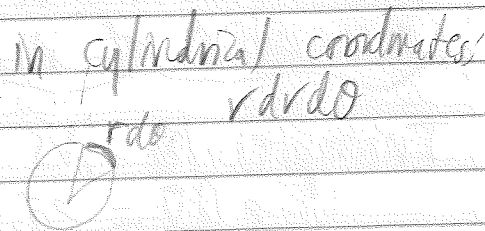 in cylindrical coordinates,
r dr dθ
r dθ